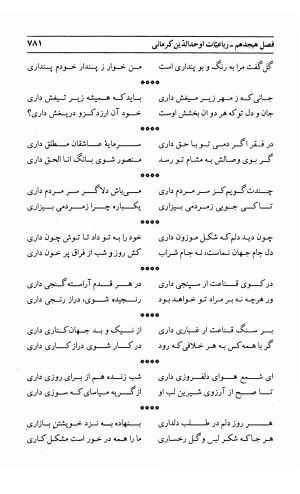 فصل هیجدهم ـ رباعیّات اوحدالدّین کرمانی ۷۸۱
گل گفت مرا به رنگ و بو پنداری است من خوار ز پندار خودم پنداری
****
جانی که ز مهر زیر میغش داری باید که همیشه زیر تیغش داری
جان و دل تو که هر دو ان بخشش اوست خود آن ارزد کزو دریغش داری؟
****
در فقر اگر دمی تو با حق داری سرمایهٔ عاشقان مطلق داری
گر بوی وصالش به مشام تو رسد منصور شوی بانگ انا الحق داری
****
چندت گویم کز سر مردم داری می‌باش دلاگر سر مردم داری
تا کی جویی ز مردمی بیزاری یکباره چرا ز مردمی بیزاری
****
چون دید دلم که شکل موزون داری خود را به تو داد تا توش چون داری
دل جام جهان نماست، نه جام شراب کش روز و شب از فراق پر خون داری
****
در کوی قناعت ار سپنجی داری در هر قدم آراسته گنجی داری
ور هرچه نه بر مراد تو خواهد بود رنجیده شوی، دراز رنجی داری
****
بر سنگ قناعت ار غباری داری از نیک و بد جهان کناری داری
گر با همه کس به هر خلافی که رود در کار شوی دراز کاری داری
****
ای شمع هوای دلفروزی داری شب زنده هم از برای روزی داری
تا صبح از آرزوی شیرین لب او از گریه میاسای که سوزی داری
****
هر روز دلم در طلب دلداری بنهاده به نزد خویشتن بازاری
هر جا که شکر لبی و گل رخساری ما را همه در خور است مشکل کاری